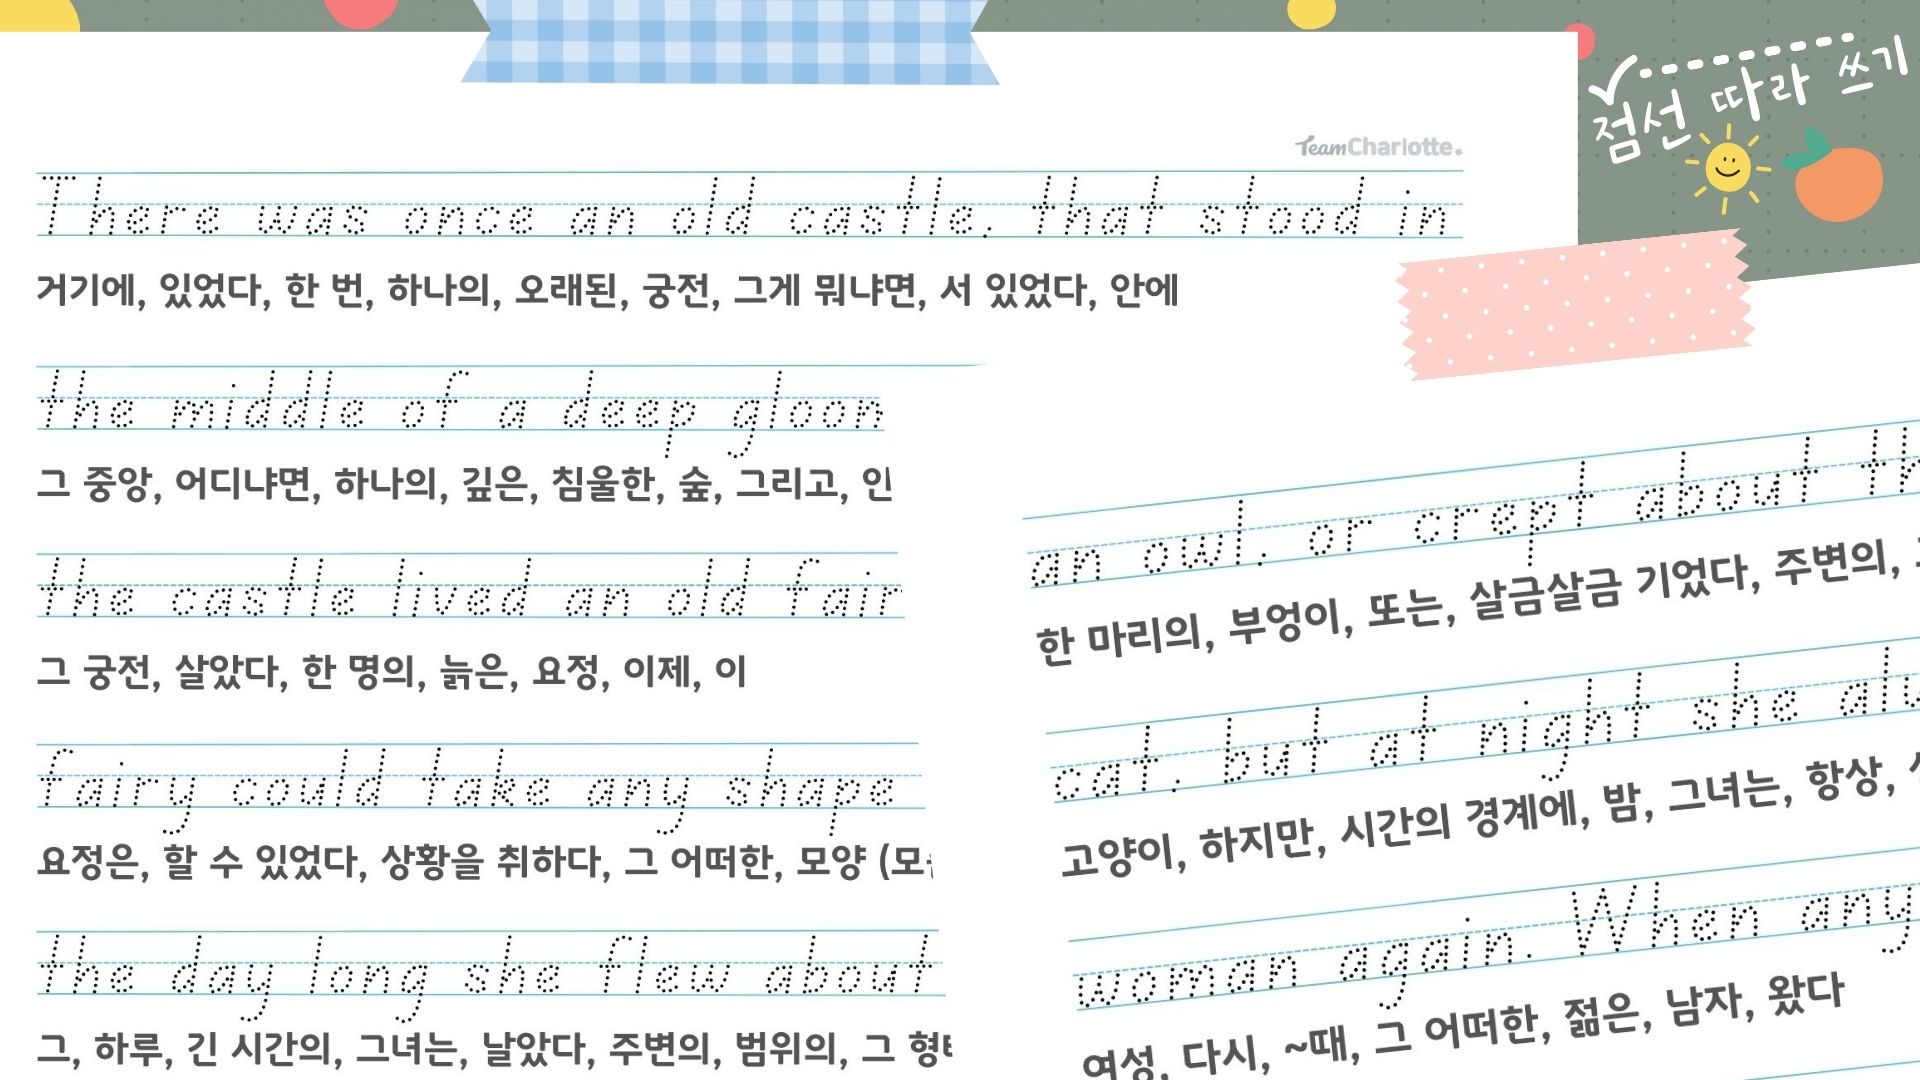 점선 따라 쓰기
TeamCharlotte.
There was once an old castle. that stood in
거기에, 있었다, 한 번, 하나의, 오래된, 궁전, 그게 뭐냐면, 서 있었다, 안에
the middle of a deep
그 중앙, 어디냐면, 하나의, 깊은, 침울한, 숲, 그리고,
the castle lived an old
그 궁전, 살았다, 한 명의, 늙은, 요정, 이제, 이
fairy could take any shape
요정은, 할 수 있었다, 상황을 취하다, 그 어떠한, 모양
the day long she flew about
그, 하루, 긴 시간의, 그녀는, 날았다, 주변의, 범위의, 그
an owl. or crept about
한 마리의, 부엉이, 또는, 살금살금 기었다, 주변의,
cat. but at night she
고양이, 하지만, 시간의 경계에, 밤, 그녀는, 항상,
woman again. When any
여성, 다시, ~때, 그 어떠한, 젊은, 남자, 왔다